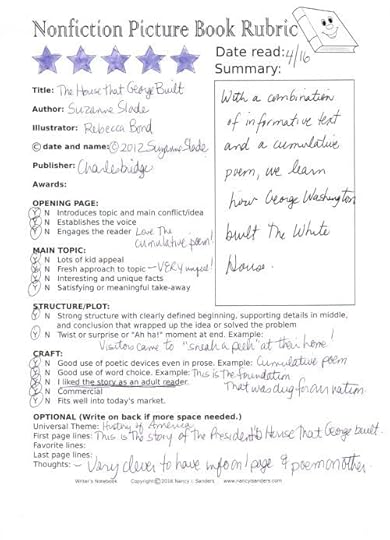 Nonfiction Picture Book Rubric
Date read: 4/16
Summary:
With a combination
of informative text
and a cumulative
poem, we learn
how George Washington
built The White
House.
Title: The House that George Built
Author: Suzanne Slade
Illustrator: Rebecca Bond
© date and name: © 2012 Suzanne Slade
Publisher: Charlesbridge
Awards:
OPENING PAGE:
Y N Introduces topic and main conflict/idea
Y N Establishes the voice
Y N Engages the reader Love The
cumulative poem!
MAIN TOPIC:
Y N Lots of kid appeal
Y N Fresh approach to topic - VERY unique!
Y N Interesting and unique facts
Y N Satisfying or meaningful take-away
STRUCTURE/PLOT:
Y N Strong structure with clearly defined beginning, supporting details in middle,
and conclusion that wrapped up the idea or solved the problem
Y N Twist or surprise or "Ah ha!" moment at end. Example:
Visitors came to "sneak a peek" at their home!
CRAFT:
Y N Good use of poetic devices even in prose. Example: Cumulative poem
Y N Good use of word choice. Example: This is the foundation
Y N I liked the story as an adult reader. That was dug for our nation.
Y N Commercial
Y N Fits well into today's market.
OPTIONAL (Write on back if more space needed.)
Universal Theme: History of America
First page lines: This is the story of The President's House That George built.
Favorite lines:
Last page lines:
Thoughts: - Very clever to have info on 1 page & poem on other.
Writer's Notebook Copyright © 2016 Nancy I. Sanders www.nancyisanders.com